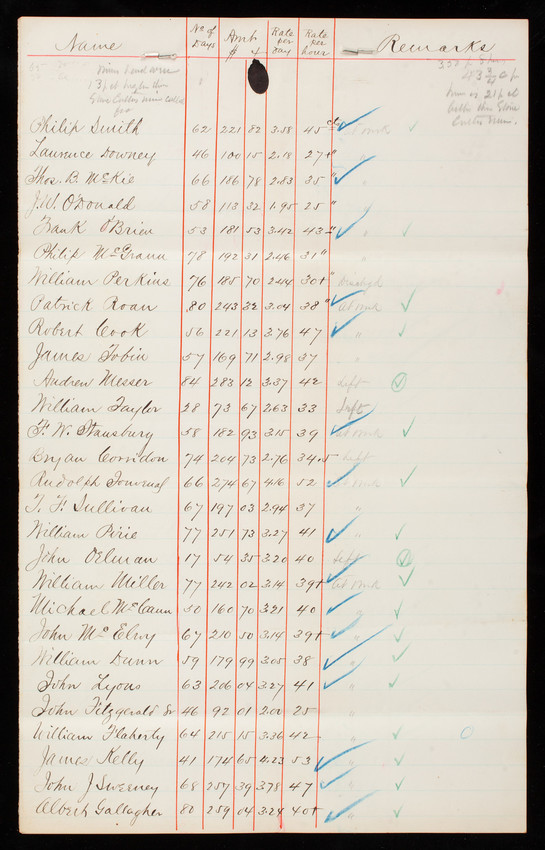 Name No of Days Amt $ ¢ Rate per Day Rate per hour Remarks
Philip Smith 62 221 82 3.58 45 cts at work ✓
Laurence Downey 46 100 15 2.18 27+ " "
Thos. B. McKie 66 186 78 2.83 35 " "
J. W. O'Donald 58 113 32 1.95 25 " "
Frank O'Brien 53 181 53 3.42 43 " " ✓
Philip McGrann 78 192 31 2.46 31 " "
William Perkins 76 185 70 2.44 30+ "
Patrick Roan 80 243 32 3.04 38 " at work ✓
Robert Cook 56 221 13 3.76 47 " ✓
James Tobin 57 169 71 2.98 37 "
Andrew Messer 84 283 12 3.37 42 left ✓
William Taylor 28 73 67 2.63 33 Left
F. W. Stansbury 58 182 93 3.15 39 at work ✓
Bryan Corridon 74 204 73 2.76 34.5 left
Rudolph Journal 66 274 67 4.16 52 at work ✓
T. F. Sullivan 67 197 03 2.94 37 "
William Pirie 77 251 73 3.27 41 " ✓
John Oelman 17 54 35 3.20 40 left ✓
William Miller 77 242 02 3.14 39+ at work ✓
Michael McCann 50 160 70 3.21 40 " ✓
John McElroy 67 210 50 3.14 39+ " ✓
William Dunn 59 179 99 3.05 38 " ✓
John Lyons 63 206 04 3.27 41 " ✓
John Fitzgerald Sr 46 92 01 2.00 25 "
William Flaherty 64 215 15 3.36 42 " ✓
James Kelly 41 174 65 4.23 53 " ✓
John J Sweeney 68 257 39 3.78 47 " ✓
Albert Gallagher 80 259 04 3.24 40+ " ✓